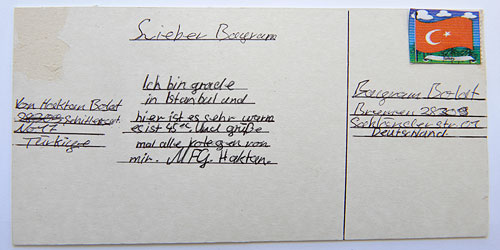 Lieber Bayram
Ich bin grade
in Istanbul und
hier ist es sehr warm
es ist 45°C Und grüße
mal alle kolegen von
mir. MFG. Haktan.
Von Haktan Bolat
Schillerort
No:17
Türkiye
Bayram Bolat
Bremen 28309
Deutschland